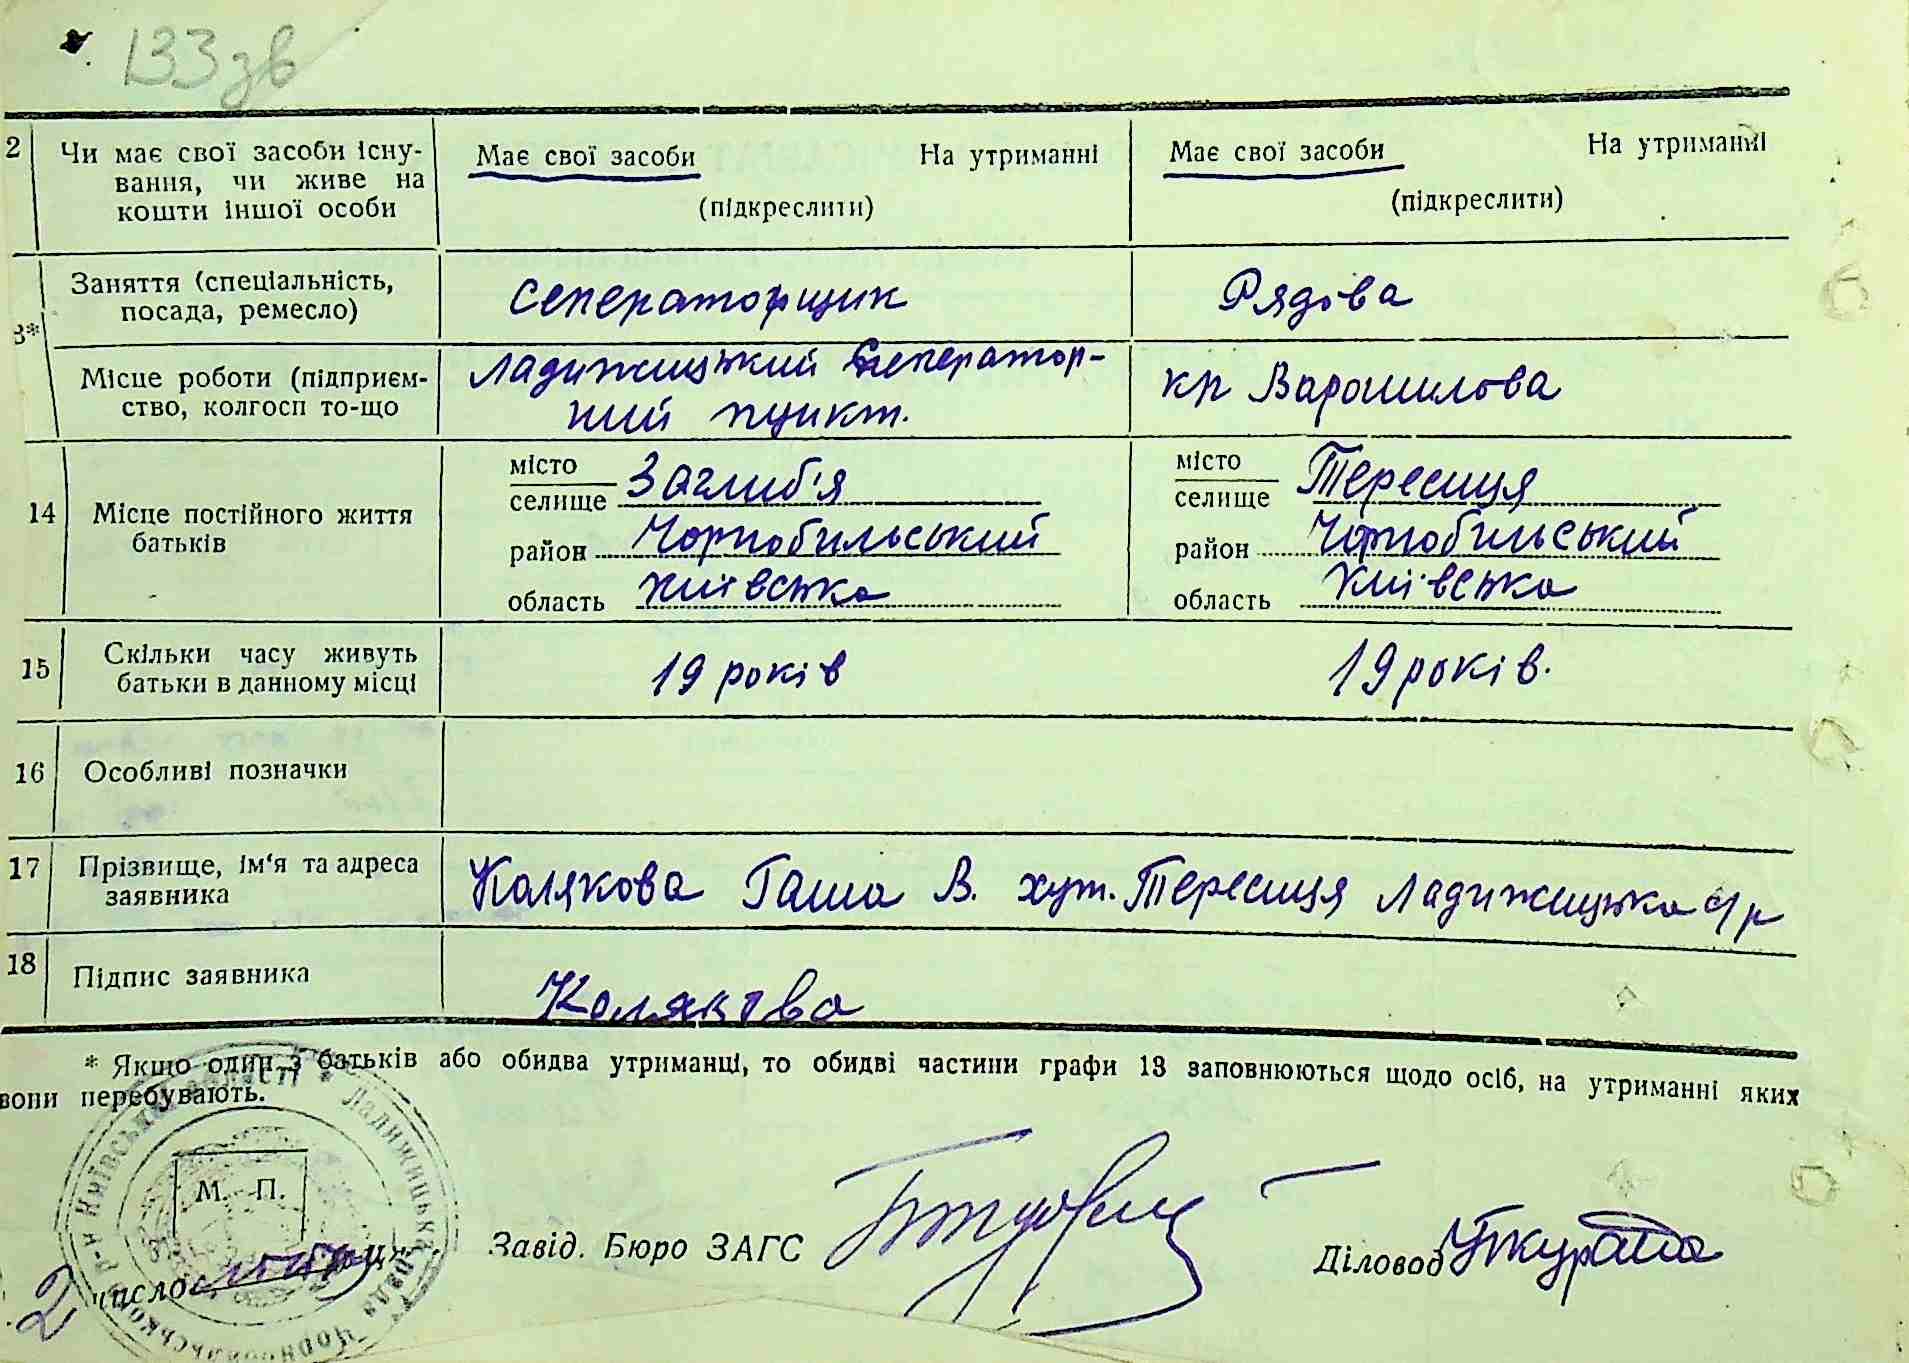 133 зв
2 Чи має свої засоби існу- Має свої засоби На утриманні Має свої засоби На утриманні
вання, чи живе на
кошти іншої особи (підкреслити) (підкреслити)
Заняття (спеціальність, Сеператорщик Рядова
посада, ремесло)
3*
Місце роботи (підприєм- Ладижицький Сеператор- кп Варошилова
ство, колгосп то-що ний пункт.
14 Місце постійного життя місто Заглиб'я місто Тересиця
батьків селище селище
район Чорнобильський район Чорнобильський
область Київська область Київська
15 Скільки часу живуть 19 років 19 років.
батьки в данному місці
16 Особливі позначки
17 Прізвище, ім'я та адреса Колякова Гаша В. хут. Тересиця Ладижицька с/р
заявника
18 Підпис заявника Колякова
* Якщо один з батьків або обидва утриманці, то обидві частини графи 13 заповнюються щодо осіб, на утриманні яких
вони перебувають.
М. П.
Завід. Бюро ЗАГС
Діловод
2 числос
Ладижицька рада Чорнобильського р-н Київської області